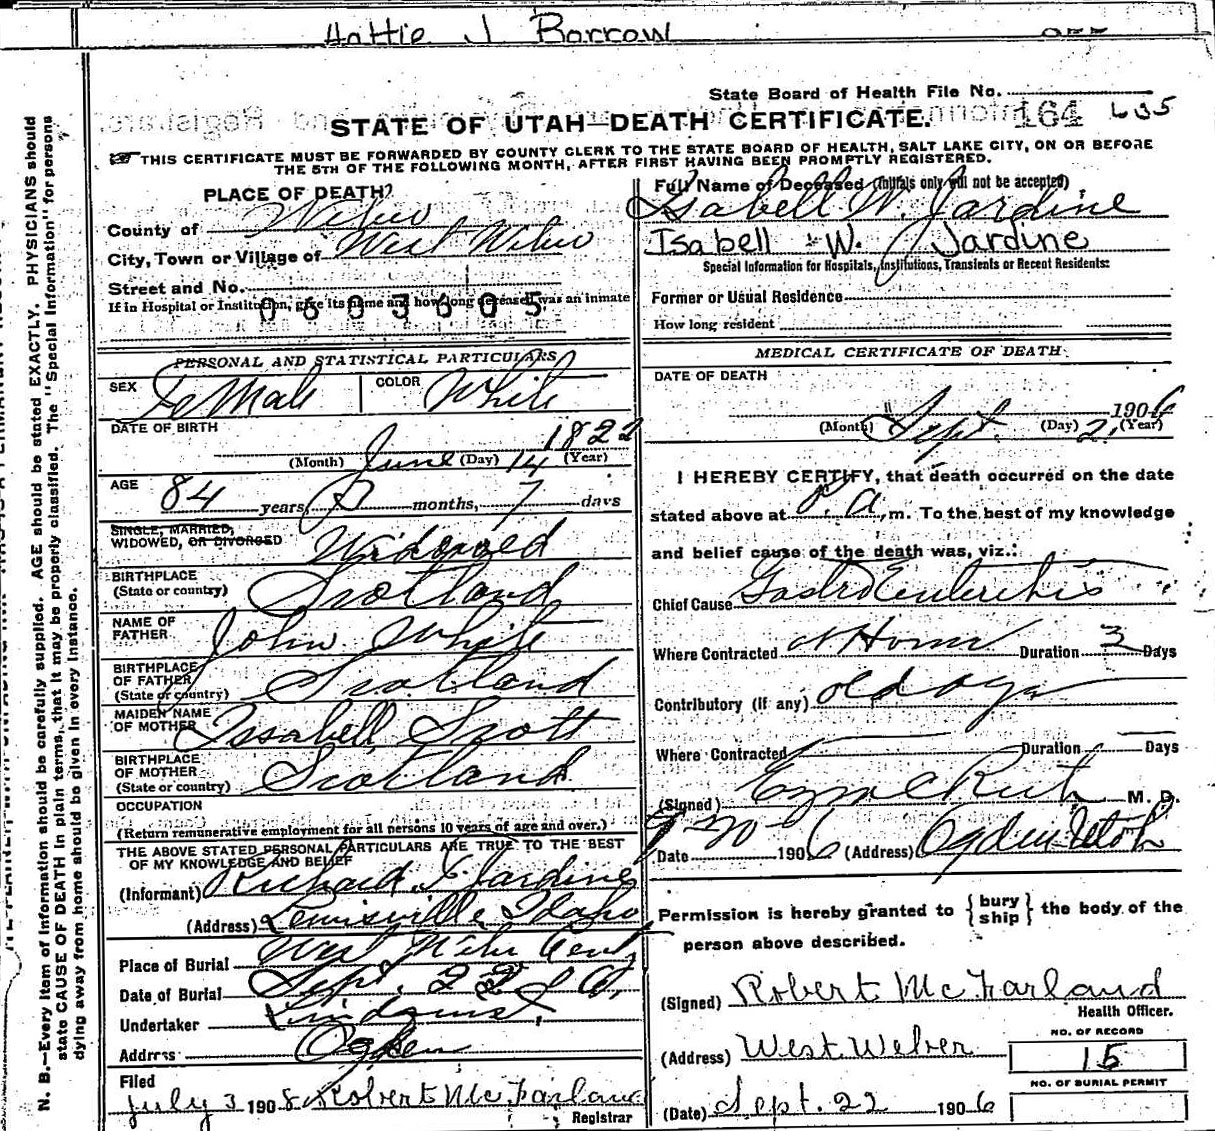 Hattie J Barrow
State Board of Health File No.
164 635
STATE OF UTAH—DEATH CERTIFICATE.
THIS CERTIFICATE MUST BE FORWARDED BY COUNTY CLERK TO THE STATE BOARD OF HEALTH, SALT LAKE CITY, ON OR BEFORE
THE 5TH OF THE FOLLOWING MONTH, AFTER FIRST HAVING BEEN PROMPTLY REGISTERED.
N. B.—Every item of information should be carefully supplied. AGE should be stated EXACTLY. PHYSICIANS should
state CAUSE OF DEATH in plain terms, that it may be properly classified. The "Special Information" for persons
dying away from home should be given in every instance.
PLACE OF DEATH
County of Weber
City, Town or Village of West Weber
Street and No.
If in Hospital or Institution, give its name and how long deceased was an inmate
0603605
PERSONAL AND STATISTICAL PARTICULARS
SEX FeMale COLOR White
DATE OF BIRTH
1822
(Month) June (Day) 14 (Year)
AGE 84 years, months, 7 days
SINGLE, MARRIED,
WIDOWED, OR DIVORCED Widowed
BIRTHPLACE
(State or country) Scotland
NAME OF
FATHER John White
BIRTHPLACE
OF FATHER
(State or country) Scotland
MAIDEN NAME
OF MOTHER Issabell Scott
BIRTHPLACE
OF MOTHER
(State or country) Scotland
OCCUPATION
(Return remunerative employment for all persons 10 years of age and over.)
THE ABOVE STATED PERSONAL PARTICULARS ARE TRUE TO THE BEST
OF MY KNOWLEDGE AND BELIEF
(Informant) Richard F Jardine
(Address) Lewisville Idaho
Place of Burial West Weber Cemty
Date of Burial Sept. 22 06
Undertaker
Address Ogden
Filed
July 3 1908 Robert McFarland
Registrar
Full Name of Deceased (Initials only will not be accepted)
Isabell W. Jardine
Isabell W. Jardine
Special Information for Hospitals, Institutions, Transients or Recent Residents:
Former or Usual Residence
How long resident
MEDICAL CERTIFICATE OF DEATH
DATE OF DEATH
1906
(Month) Sept. (Day) 21 (Year)
I HEREBY CERTIFY, that death occurred on the date
stated above at 8 a, m. To the best of my knowledge
and belief cause of the death was, viz.:
Chief Cause Gastro Enteritis
Where Contracted at Home Duration 3 Days
Contributory (if any) old age
Where Contracted Duration Days
(Signed) Ezra C Rich M. D.
Date 9-20 1906 (Address) Ogden Utah
Permission is hereby granted to { bury ship } the body of the
person above described.
(Signed) Robert McFarland
Health Officer.
NO. OF RECORD
(Address) West Weber 15
NO. OF BURIAL PERMIT
(Date) Sept. 22 1906